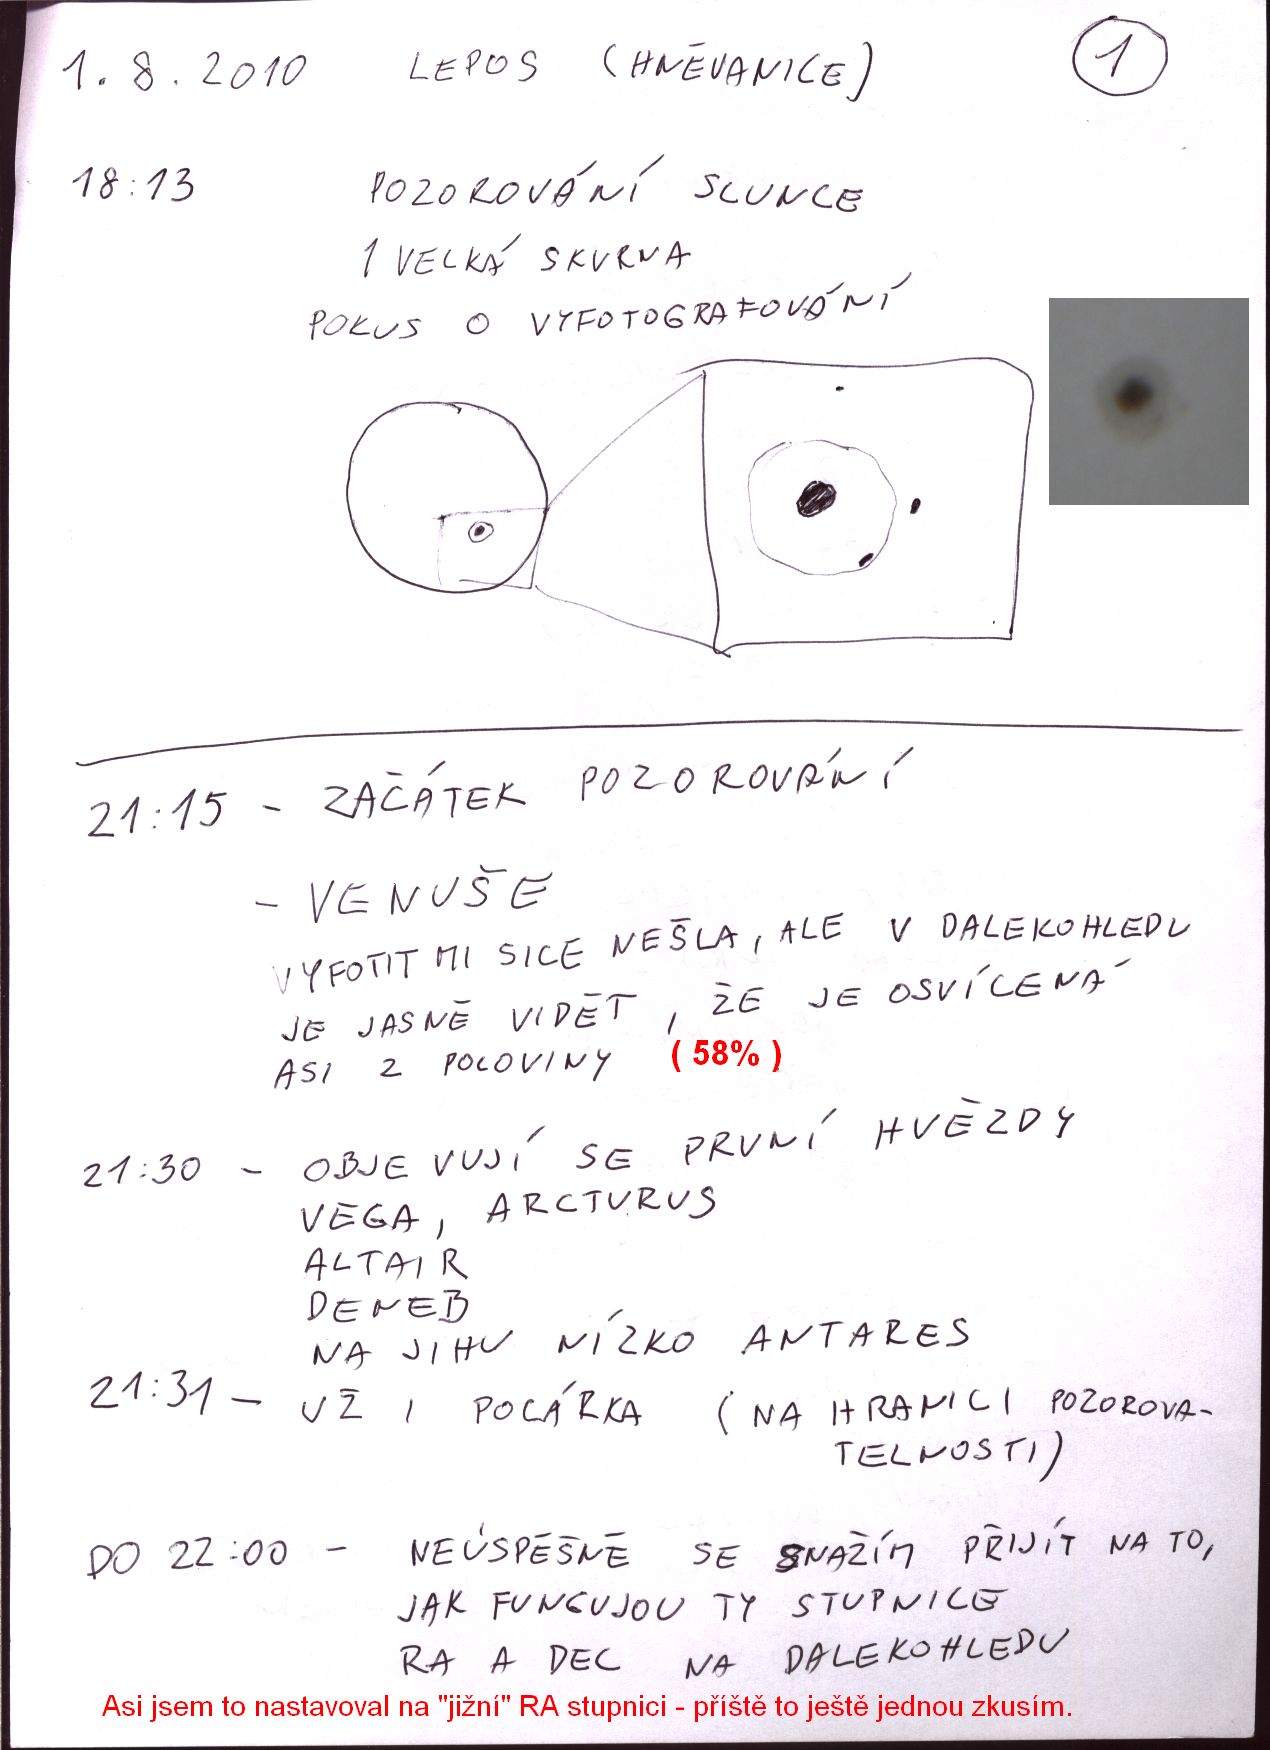 1.8.2010 LEPOS (HNĚVANICE) 1
18:13 POZOROVÁNÍ SLUNCE
1 VELKÁ SKVRNA
POKUS O VYFOTOGRAFOVÁNÍ
21:15 - ZAČÁTEK POZOROVÁNÍ
- VENUŠE
VYFOTIT MI SICE NEŠLA, ALE V DALEKOHLEDU
JE JASNĚ VIDĚT, ŽE JE OSVÍCENÁ
ASI Z POLOVINY ( 58% )
21:30 - OBJEVUJÍ SE PRVNÍ HVĚZDY
VEGA, ARCTURUS
ALTAIR
DENEB
NA JIHU NÍZKO ANTARES
21:31 - UŽ I POLÁRKA (NA HRANICI POZOROVA-
TELNOSTI)
DO 22:00 - NEÚSPĚŠNĚ SE SNAŽÍM PŘIJÍT NA TO,
JAK FUNGUJOU TY STUPNICE
RA A DEC NA DALEKOHLEDU
Asi jsem to nastavoval na "jižní" RA stupnici - příště to ještě jednou zkusím.